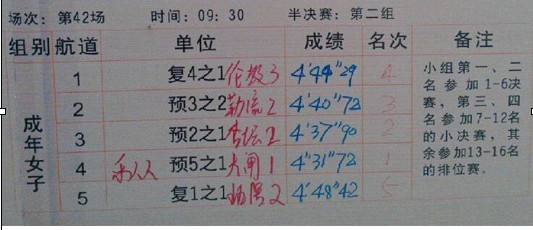 场次：第42场 时间：09：30 半决赛：第二组
组别 航道 单位 成绩 名次 备注
成年女子
1 复4之1 伦教3 4'44"29 4
2 预3之2 勒流2 4'40"72 3
3 预2之1 杏坛2 4'37"90 2
4 预5之1 大闸1 4'31"72 1
5 复1之1 2 4'48"42 5
小组第一、二
名参加1-6决
赛，第三、四
名参加7-12名
的小决赛，其
余参加13-16名
的排位赛。